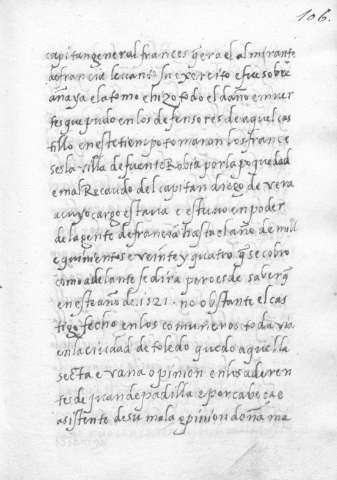 106.
capitan general frances q̃ era el almirante
de francia levantó su exercito e fue sobre
amaya e la tomo e hizo todo el daño e muer
tes que pudo en los defensores de aquel cas
tillo en este tiempo tomaron los france
ses la villa de fuente Rabia por la poquedad
e mal Recaudo del capitan diego de vera
a cuyo cargo estava e estuvo en poder
de la gente de francia hasta el año de mill
e quinientos e veinte y quatro q̃ se cobro
como adelante se dira pero es de saber q̃
en este año de .1521. no obstante el cas
tigo fecho en los comuneros toda via
en la ciudad de toledo quedo aquella
secta e vana opinion en los aderen
tes de juan de padilla e por cabeça e
asistente de su mala opinion doña ma